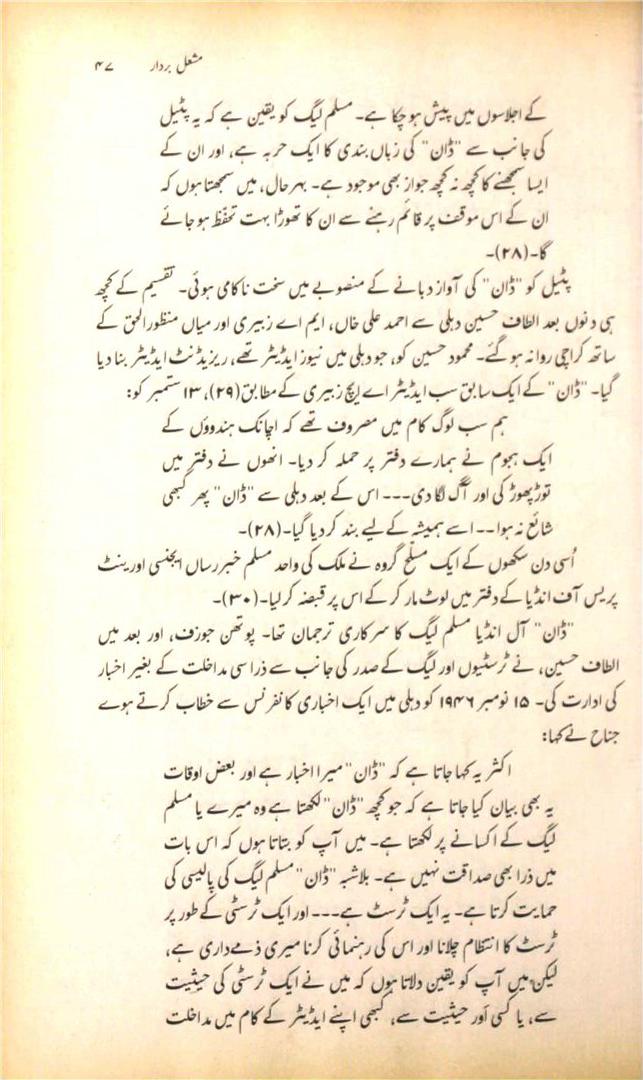 مشعل بردار ۴۷
کے اجلاسوں میں پیش ہو چکا ہے۔ مسلم لیگ کو یقین ہے کہ یہ پٹیل
کی جانب سے "ڈان" کی زباں بندی کا ایک حربہ ہے، اور ان کے
ایسا سمجھنے کا کچھ نہ کچھ جواز بھی موجود ہے۔ بہر حال، میں سمجھتا ہوں کہ
ان کے اس موقف پر قائم رہنے سے ان کا تھوڑا بہت تحفّظ ہو جائے
گا۔(۲۸)۔
پٹیل کو "ڈان" کی آواز دبانے کے منصوبے میں سخت ناکامی ہوئی۔ تقسیم کے کچھ
ہی دنوں بعد الطاف حسین دہلی سے احمد علی خاں، ایم اے زبیری اور میاں منظور الحق کے
ساتھ کراچی روانہ ہو گئے۔ محمود حسین کو، جو دہلی میں نیوز ایڈیٹر تھے، ریزیڈنٹ ایڈیٹر بنا دیا
گیا۔ "ڈان" کے ایک سابق سب ایڈیٹر اے ایچ زبیری کے مطابق (۲۹)، ۱۳ ستمبر کو:
ہم سب لوگ کام میں مصروف تھے کہ اچانک ہندوؤں کے
ایک ہجوم نے ہمارے دفتر پر حملہ کر دیا۔ انھوں نے دفتر میں
توڑ پھوڑ کی اور آگ لگا دی۔۔۔ اس کے بعد دہلی سے "ڈان" پھر کبھی
شائع نہ ہوا۔۔ اسے ہمیشہ کے لیے بند کر دیا گیا۔(۲۸)۔
اُسی دن سکھوں کے ایک مسلّح گروہ نے ملک کی واحد مسلم خبر رساں ایجنسی اورینٹ
پریس آف انڈیا کے دفتر میں لوٹ مار کر کے اس پر قبضہ کر لیا۔(۳۰)۔
"ڈان" آل انڈیا مسلم لیگ کا سرکاری ترجمان تھا۔ پوتھن جوزف، اور بعد میں
الطاف حسین، نے ٹرسٹیوں اور لیگ کے صدر کی جانب سے ذرا سی مداخلت کے بغیر اخبار
کی ادارت کی۔ ۱۵ نومبر ۱۹۴۶ کو دہلی میں ایک اخباری کانفرنس سے خطاب کرتے ہوے
جناح نے کہا:
اکثر یہ کہا جاتا ہے کہ "ڈان" میرا اخبار ہے اور بعض اوقات
یہ بھی بیان کیا جاتا ہے کہ جو کچھ "ڈان" لکھتا ہے وہ میرے یا مسلم
لیگ کے اکسانے پر لکھتا ہے۔ میں آپ کو بتاتا ہوں کہ اس بات
میں ذرا بھی صداقت نہیں ہے۔ بلاشبہ "ڈان" مسلم لیگ کی پالیسی کی
حمایت کرتا ہے۔ یہ ایک ٹرسٹ ہے۔۔۔ اور ایک ٹرسٹی کے طور پر
ٹرسٹ کا انتظام چلانا اور اس کی رہنمائی کرنا میری ذمے داری ہے،
لیکن میں آپ کو یقین دلاتا ہوں کہ میں نے ایک ٹرسٹی کی حیثیت
سے، یا کسی اَور حیثیت سے، کبھی اپنے ایڈیٹر کے کام میں مداخلت